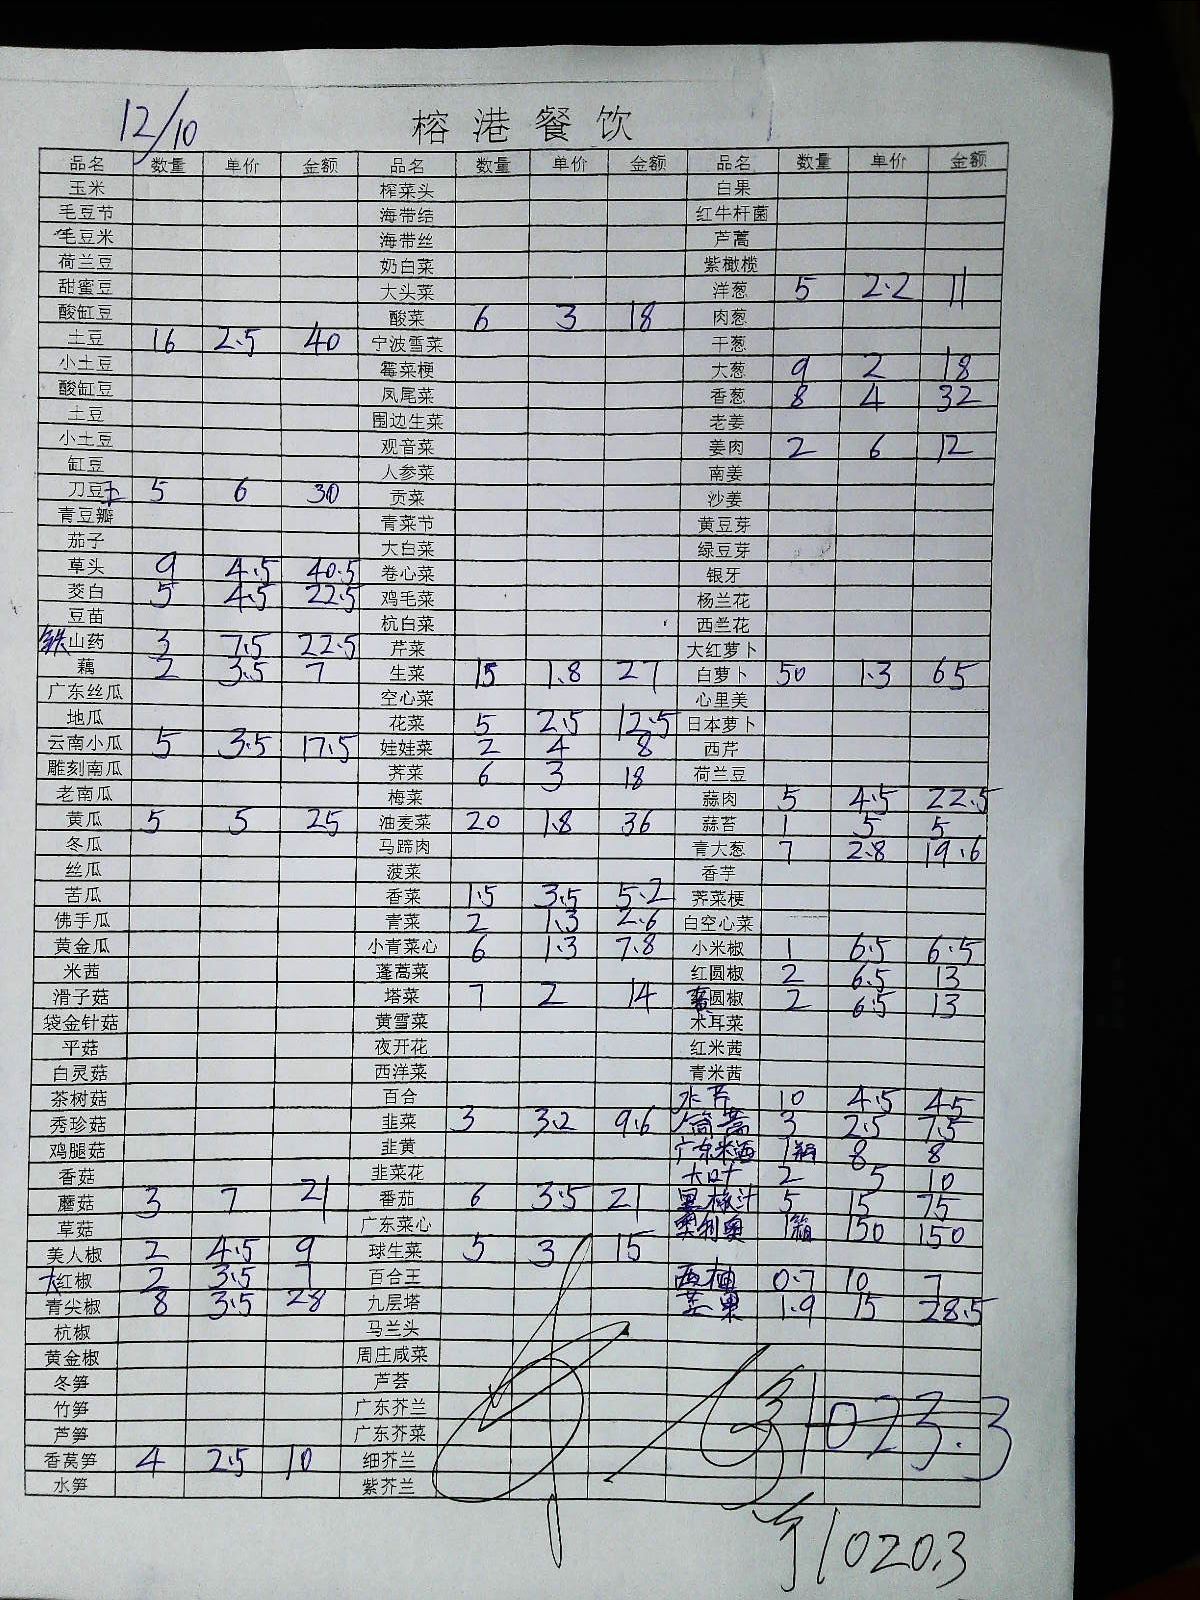 12/10
榕港餐饮
品名 数量 单价 金额 品名 数量 单价 金额 品名 数量 单价 金额
玉米 榨菜头 白果
毛豆节 海带结 红牛杆菌
毛豆米 海带丝 芦蒿
荷兰豆 奶白菜 紫橄榄
甜蜜豆 大头菜 洋葱 5 2.2 11
酸缸豆 酸菜 6 3 18 肉葱
土豆 16 2.5 40 宁波雪菜 干葱
小土豆 霉菜梗 大葱 9 2 18
酸缸豆 凤尾菜 香葱 8 4 32
土豆 围边生菜 老姜
小土豆 观音菜 姜肉 2 6 12
缸豆 人参菜 南姜
刀豆王 5 6 30 贡菜 沙姜
青豆瓣 青菜节 黄豆芽
茄子 大白菜 绿豆芽
草头 9 4.5 40.5 卷心菜 银牙
茭白 5 4.5 22.5 鸡毛菜 杨兰花
豆苗 杭白菜 西兰花
铁山药 3 7.5 22.5 芹菜 大红萝卜
藕 2 3.5 7 生菜 15 1.8 27 白萝卜 50 1.3 65
广东丝瓜 空心菜 心里美
地瓜 花菜 5 2.5 12.5 日本萝卜
云南小瓜 5 3.5 17.5 娃娃菜 2 4 8 西芹
雕刻南瓜 荠菜 6 3 18 荷兰豆
老南瓜 梅菜 蒜肉 5 4.5 22.5
黄瓜 5 5 25 油麦菜 20 1.8 36 蒜苔 1 5 5
冬瓜 马蹄肉 青大葱 7 2.8 19.6
丝瓜 菠菜 香芋
苦瓜 香菜 1.5 3.5 5.2 荠菜梗
佛手瓜 青菜 2 1.3 2.6 白空心菜
黄金瓜 小青菜心 6 1.3 7.8 小米椒 1 6.5 6.5
米茜 蓬蒿菜 红圆椒 2 6.5 13
滑子菇 塔菜 7 2 14 圆椒 2 6.5 13
袋金针菇 黄雪菜 木耳菜
平菇 夜开花 红米茜
白灵菇 西洋菜 青米茜
茶树菇 百合 水芹 10 4.5 45
秀珍菇 韭菜 3 3.2 9.6 筒蒿 3 2.5 7.5
鸡腿菇 韭黄 广东米酒 1瓶 8 8
香菇 韭菜花 大叶 2 5 10
蘑菇 3 7 21 番茄 6 3.5 21 黑椒汁 5 15 75
草菇 广东菜心 奥利奥 1箱 150 150
美人椒 2 4.5 9 球生菜 5 3 15
大红椒 2 3.5 7 百合王 西柚 0.7 10 7
青尖椒 8 3.5 28 九层塔 芒果 1.9 15 28.5
杭椒 马兰头
黄金椒 周庄咸菜
冬笋 芦荟
竹笋 广东芥兰 1023.3
芦笋 广东芥菜
香莴笋 4 2.5 10 细芥兰
水笋 紫芥兰
1020.3